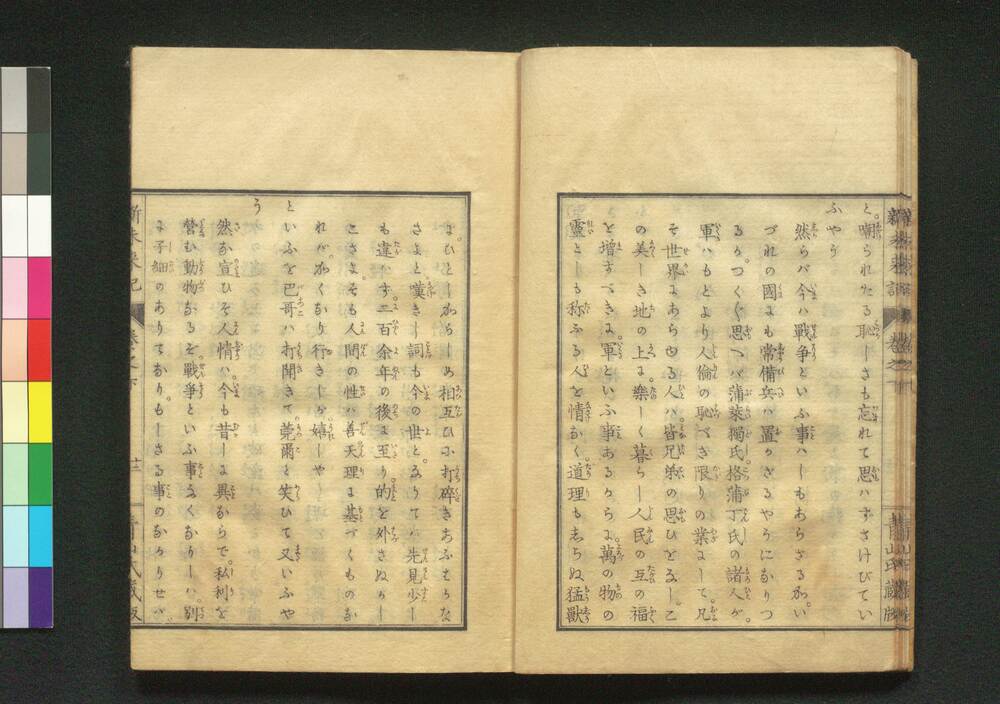 と。嘲られたる恥しさも忘れて思ハずさけびてい
ふやう
然らバ今ハ戦争といふ事ハしもあらざるか。い
づれの國にも常備兵ハ置かざるやうになりつ
るか。つく〲思へバ蒲萊獨氏。格蒲丁氏の諸人が。
軍ハもとより人倫の恥べき限りの業にして。兄
そ世界にあらゆる人ハ皆兄弟の思ひをなし。こ
の美しき地の上に。樂しく暮らし人民の互の福
を増すべきに。軍といふ事あるからに。萬の物の
靈としも称ふる人を情なく。道理もしらぬ猛獣
にひとしからしめ相互ひに打碎きあふはうた
さよと嘆きし詞も今の世となりてハ先見少し
も違ハず。二百余年の後に至り的を外さぬかし
こさよ。そも人間の性ハ善天理に基づくものな
れバ。かくなり行きしか嬉しや
といふを巴哥ハ打聞きて。莞爾と笑ひて又いふや
う
然な宣ひそ人情ハ。今も昔しに異ならで。私利を
營む動物なるを。戦争といふ事なくなりしハ。別
に子細のありてなり。もしさる事のなかりせバ。
新未来記
卷之下
十二
青山氏藏版